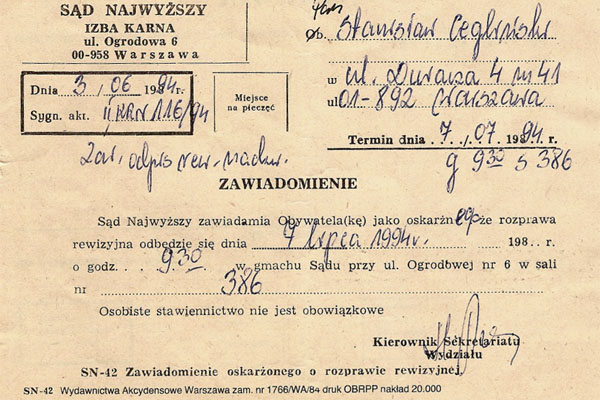 SĄD NAJWYŻSZY
IZBA KARNA
ul. Ogrodowa 6
00-958 Warszawa
Dnia 3/06 1994r.
Sygn. akt. II KRN 116/94
Miejsce
na pieczęć
Ob. Stanisław Cegliński
w ul. Duracza 4 m 41
ul 01-892 Warszawa
Termin dnia 7./07 1994r.
g 9.30 s 386
Zał. odpis rew. nadzw.
ZAWIADOMIENIE
Sąd Najwyższy zawiadamia Obywatela(kę) jako oskarżonego że rozprawa
rewizyjna odbędzie się dnia 7 lipca 1994r. 198... r.
o godz. 9.30 w gmachu Sądu przy ul. Ogrodowej nr 6 w sali
nr 386
Osobiste stawiennictwo nie jest obowiązkowe
Kierownik Sekretariatu
Wydziału
SN-42 Zawiadomienie oskarżonego o rozprawie rewizyjnej.
SN-42 Wydawnictwa Akcydensowe Warszawa zam. nr 1766/WA/84 druk OBRPP nakład 20.000